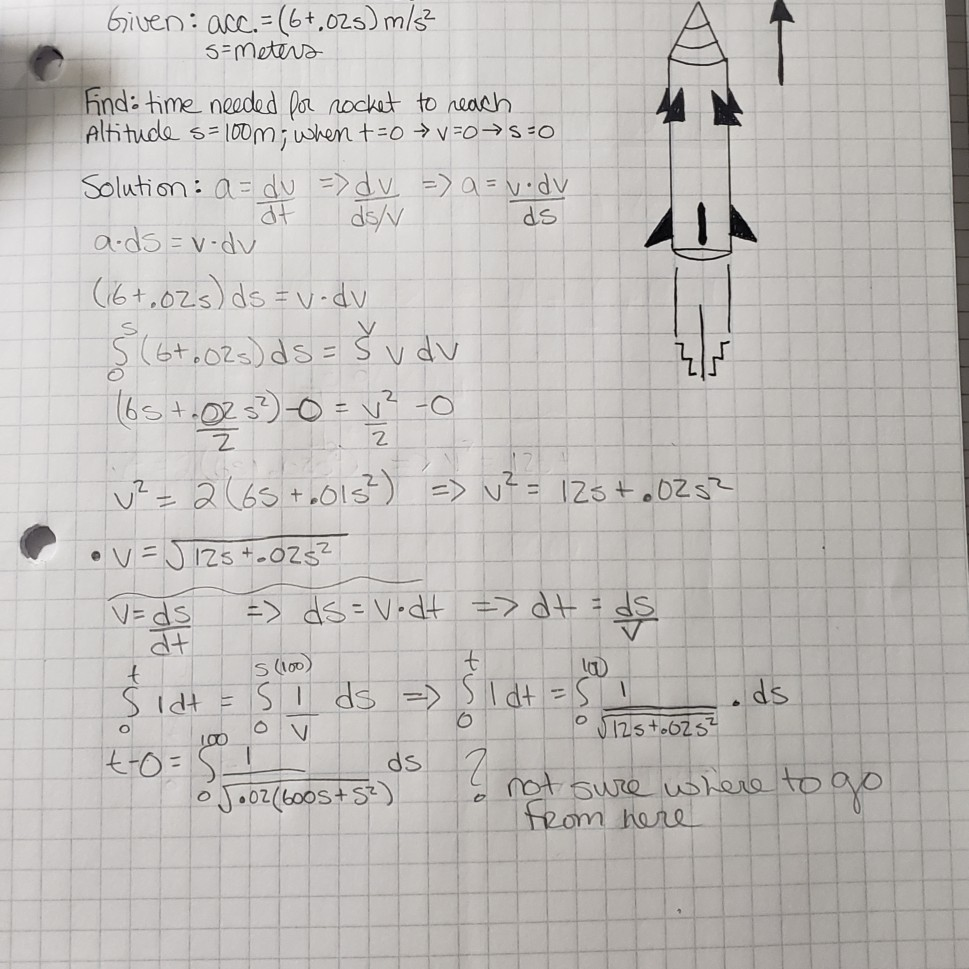 Given: acc. = (6+.02s) m/s²
s=meters
Find: time needed for rocket to reach
Altitude s=100m; when t=0 → v=0 → s=0
Solution: a = dv/dt => dv/ds/v => a = v·dv/ds
a·ds = v·dv
(16+.02s) ds = v·dv
∫₀ˢ (6+.02s) ds = ∫ᵛ v dv
(6s + .02s²/2) - 0 = v²/2 - 0
v² = 2(6s + .01s²) => v² = 12s + .02s²
• v = √12s + .02s²
v = ds/dt => ds = v·dt => dt = ds/v
∫₀ᵗ 1dt = ∫₀ˢ⁽¹⁰⁰⁾ 1/v ds => ∫₀ᵗ 1dt = ∫₀¹⁰⁰ 1/√12s+.02s² · ds
t-0 = ∫₀¹⁰⁰ 1/√.02(600s+s²) ds ? not sure where to go
from here